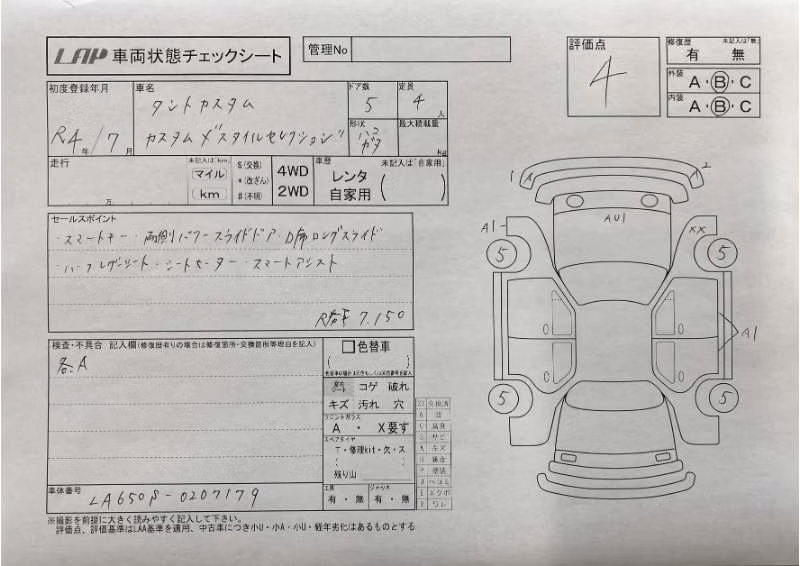 LAP 車両状態チェックシート
管理No
評価点
4
修復歴 未記入は「無」
有 無
外装 A・B・C
内装 A・B・C
初度登録年月
R4年/7月
車名
タントカスタム
カスタム〝スタイルセレクション〟
ドア数
5
定員
4人
形状
ハコ
最大積載量
kg
走行
未記入は「km」
マイル
(km)
万
$(交換)
*(改ざん)
#(不明)
4WD
2WD
車歴 未記入は「自家用」
レンタ
自家用
セールスポイント
・スマートキー・両側パワースライドドア・D席ロングスライド
・ハーフレザーシート・シートヒーター・スマートアシスト
R券¥7.150
検査・不具合 記入欄(修復歴有りの場合は修復箇所・交換箇所等理由を記入)
各A
色替車
コゲ 破れ
キズ 汚れ 穴
フロントガラス
A ・ X要す
スペアタイヤ
T・修理kit・欠・ス
残り山
車体番号
LA650S-0207179
工具
有・無
ジャッキ
有・無
※撮影を前提に大きく読みやすく記入して下さい。
評価点、評価基準はLAA基準を適用、中古車につき小U・小A・小U・経年劣化はあるものとする
1 A
A 2
AU1
A1
XX
5
5
A1
5
5
XX 交換済